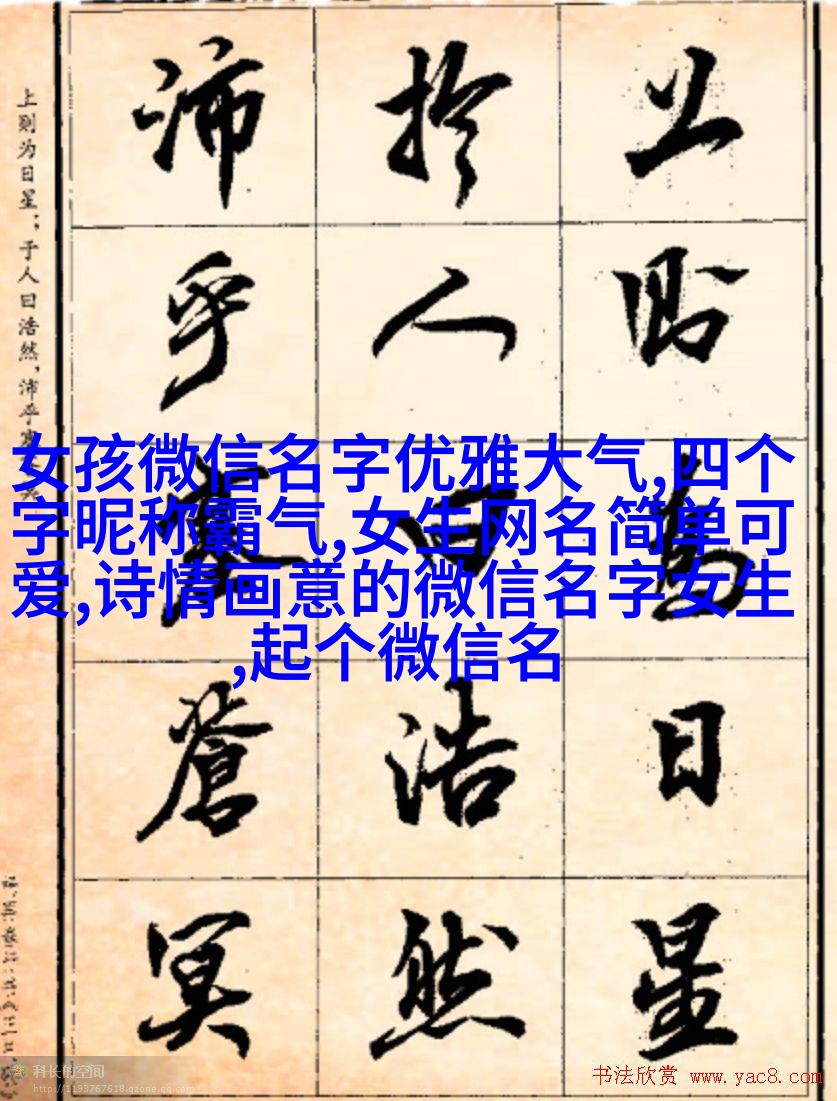 上則為日星
於人曰浩然
沛乎塞蒼冥
上则为日星;于人曰浩然,沛乎
女孩微信名字优雅大气,四个
字昵称霸气,女生网名简单可
爱,诗情画意的微信名字女生
,起个微信名
科长的空间
http://1193767618.qzone.qq.com
书法欣赏 www.yac8.com